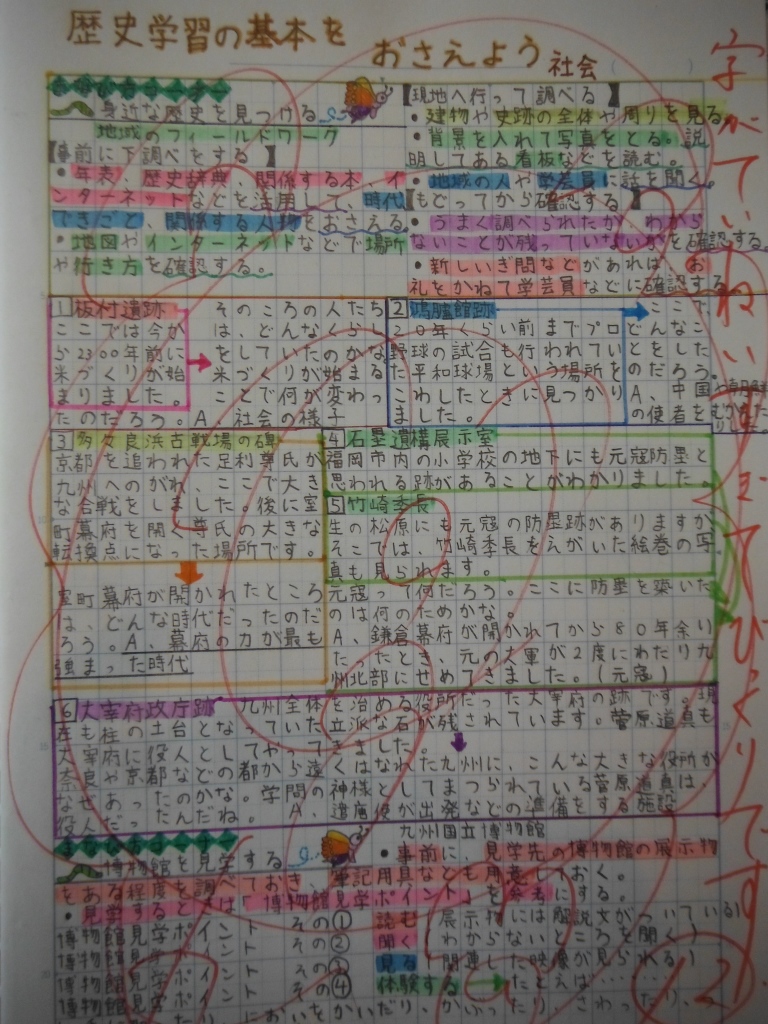 歴史学習の基本を
おさえよう 社会
身近な歴史を見つける
地域のフィールドワーク
【事前に下調べをする】
・年表、歴史辞典、関係する本、イ
ンターネットなどを活用し、時代
できごと、関係する人物をおさえる
・地図やインターネットなどで場所
や行き方を確認する。
【現地へ行って調べる】
・建物や史跡の全体や周りを見る。
・背景を入れて写真をとる。説
明してある看板などを読む。
・地域の人や学芸員に話を聞く。
【もどってから確認する】
・うまく調べられたか、わから
ないことが残っていないかを確認する。
・新しいぎ問などがあれば、お
礼をかねて学芸員などに確認する。
1 板付遺跡
ここでは今か
ら2300年前に
米づくりが始
まりました。
そのころの人たち
は、どんなくらし
をしていたのかな
米づくりが始まる
ことで何が変わっ
たのだろう。A、社会の様子
2 鴻臚館跡
20年くらい前までプロ
野球の試合も行われてい
た平和球場という場所を
こわしたときに見つかり
ました。
ここで、
どんなこ
とをした
のだろう。
A、中国や朝鮮
の使者をむかえた
りした
3 多々良浜古戦場の碑
京都を追われた足利尊氏が
九州へのがれ、ここで大き
な合戦をしました。後に室
町幕府を開く尊氏の大きな
転換点になった場所です。
室町幕府が開かれたところ
は、どんな時代だったのだ
ろう。A、幕府の力が最も
強まった時代
4 石塁遺構展示室
福岡市内の小学校の地下にも元寇防塁と
思われる跡があることがわかりました。
5 竹崎季長
生の松原にも元寇の防塁跡がありますが
そこでは、竹崎季長をえがいた絵巻の写
真も見られます。
元寇って何だろう。ここに防塁を築いた
のは何のためかな。
A、鎌倉幕府が開かれてから80年余り
たったとき、元の大軍が2度にわたり九
州北部にせめてきました。(元寇)
6 大宰府政庁跡 九州全体を治める役所だった大宰府の跡です。現
在も柱の土台となっていた立派な石が残されています。菅原道真も
大宰府に役人としてやってきました。
奈良や京都などの都から遠くはなれた九州に、こんな大きな役所が
なぜあったのかな。学問の神様としてまつられている菅原道真は、
役人だったんだね。A、遣唐使が出発などの準備をする施設
博物館を見学する
九州国立博物館
・事前に、見学先の博物館の展示物
をある程度を調べておき、筆記用具なども用意しておく。
・見学するときは「博物館見学ポイント」を参考にする。
博物館見学ポイント その① 読む(展示物には解説文がついている)
博物館見学ポイント その② 聞く(わからないところを聞く)
博物館見学ポイント その③ 見る(関連した映像が見られる)
博物館見学ポイント その④ 体験する→たとえば……
においをかいだり、かぶったり、さわったり、
字がていねい
です